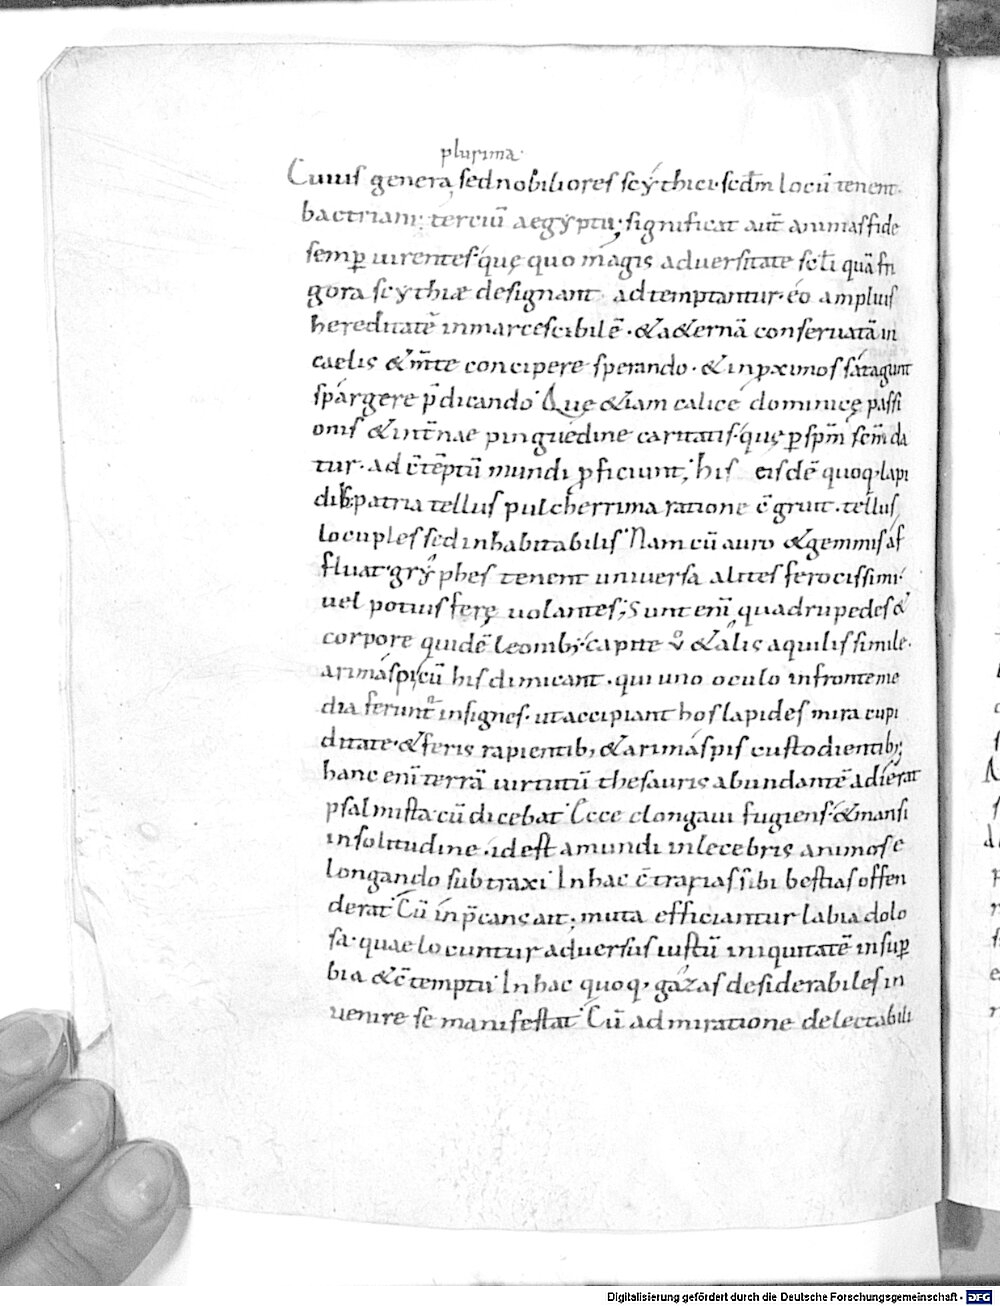 plurima·
Cuius genera, sed nobiliores scythici· scdm̄ locū tenent·
bactriani; terciū aegyptii; significat aūt animas fide
semp̱ uirentes· quę quo magis aduersitate scl̄i quā fri
gora scythiæ designant· adtemptantur· eo amplius
hereditatē inmarcescibilē· &a&ernā conseruatā in
caelis &m̄te concipere sperando· &inp̱ximos sátagunt
spárgere p̄dicando· Quę &iam calicé dominicę passi
onis &int̄nae pinguédine caritatis· quę p̱ sp̄m scm̄ da
tur· ad c̄tēptū mundi p̱ficiunt; his eisdē quoq· lapi
dib; patria tellus pulcherrima ratione c̄gruit· tellus
locuples sed inhabitabilis· Nam cū auro &gemmis áf
fluat· grýphes tenent uniuersa alites ferocissimi·
uel potius ferę uolantes; Sunt enī quadrupedes &
corpore quidē leonib; capite v̊ &ális aquilis simile·
arimáspi cū his dimicant· qui uno oculo in fronte me
dia ferunt̄ insignes· ut accipiant hos lapides mira cupi
ditate· &feris rapientib; &arimáspis custodientib;
hanc enī terrā uirtutū thesauris abundantē adierat
psalmista· cū dicebat· Ecce elongaui fugiens· &mansi
in solitudine· id est a mundi inlecebris animos e
longando subtraxi· In hac c̄trarias sibi bestias offen
derat· Cū inp̄cans ait; muta efficiantur labia dolo
sa· quae locuntur aduersus iustū iniquitatē in sup̱
bia &c̄temptū· In hac quoq· gázas desiderabiles in
uenire se manifestat· Cū admiratione delectabili
Digitalisierung gefördert durch die Deutsche Forschungsgemeinschaft - DFG